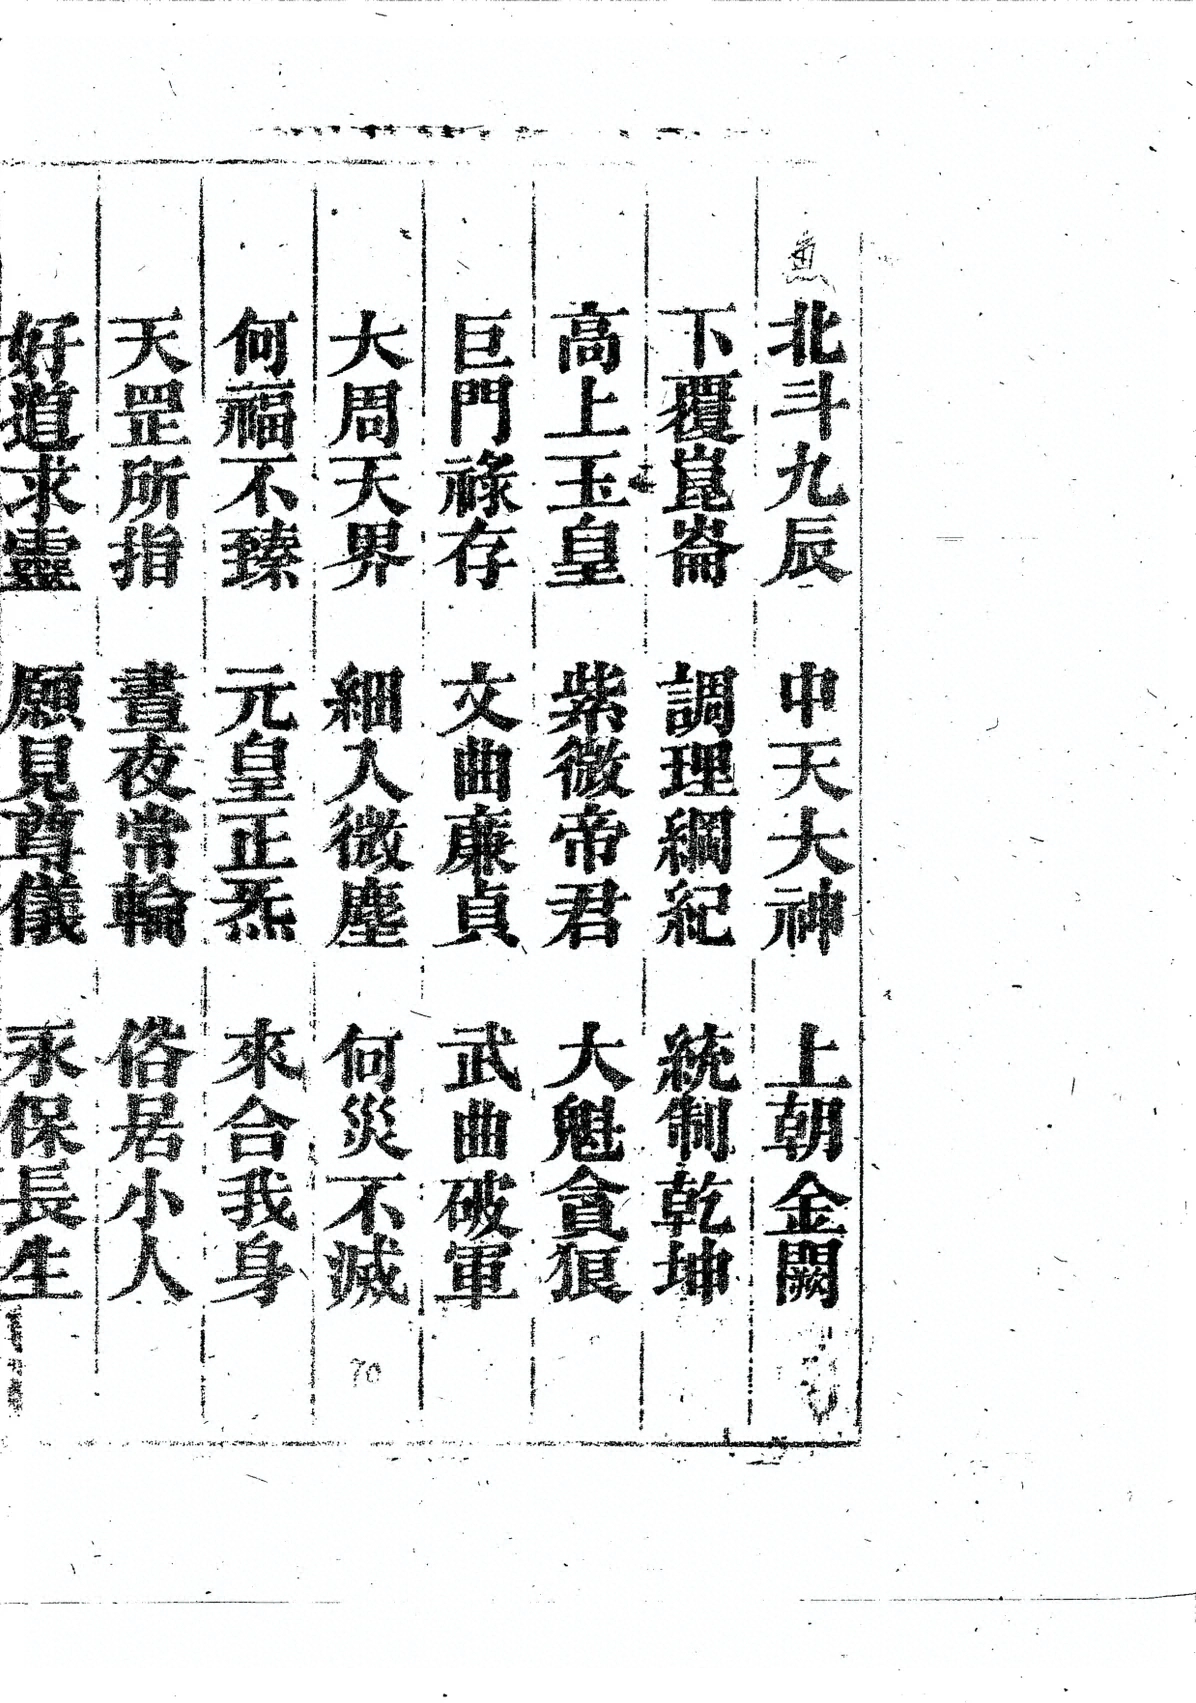 北斗九辰　中天大神　上朝金闕
下覆崑崙　調理綱紀　統制乾坤
高上玉皇　紫微帝君　大魁貪狼
巨門祿存　文曲廉貞　武曲破軍
大周天界　細入微塵　何災不滅
何福不臻　元皇正炁　來合我身
天罡所指　晝夜常輪　俗居小人
好道求靈　願見尊儀　永保長生
70